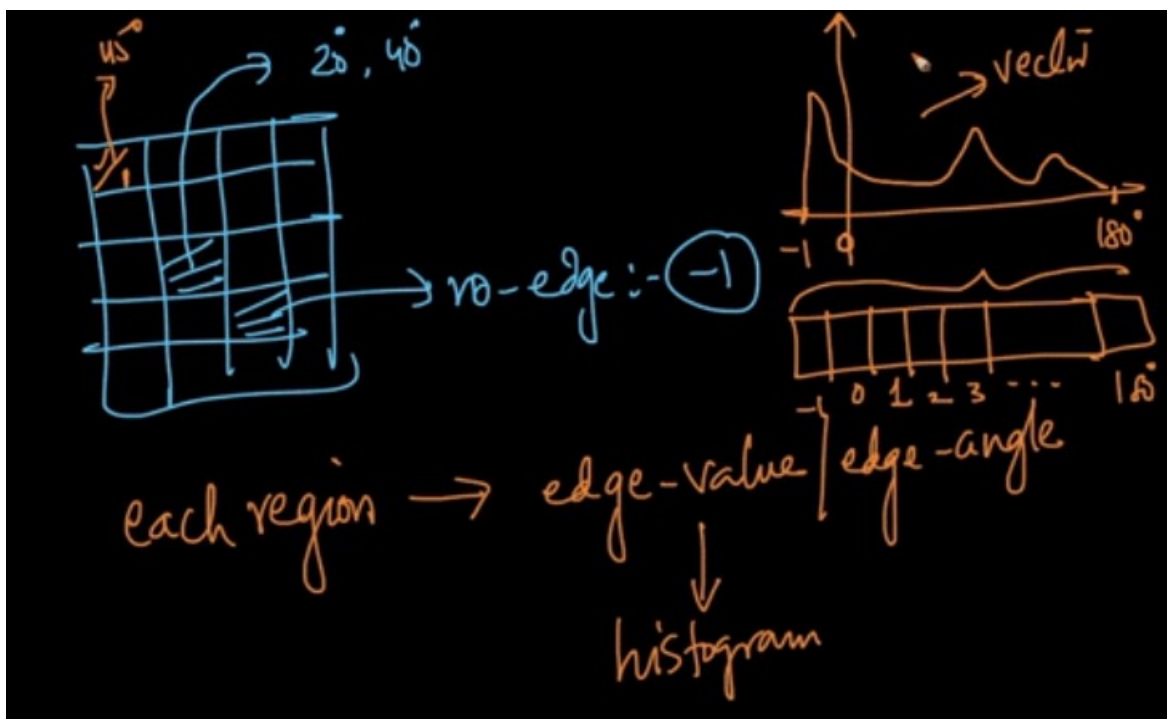 45°
20°, 40°
vector
-1 0 180°
no-edge :- -1
-1 0 1 2 3 ... 180°
each region → edge-value / edge-angle
histogram